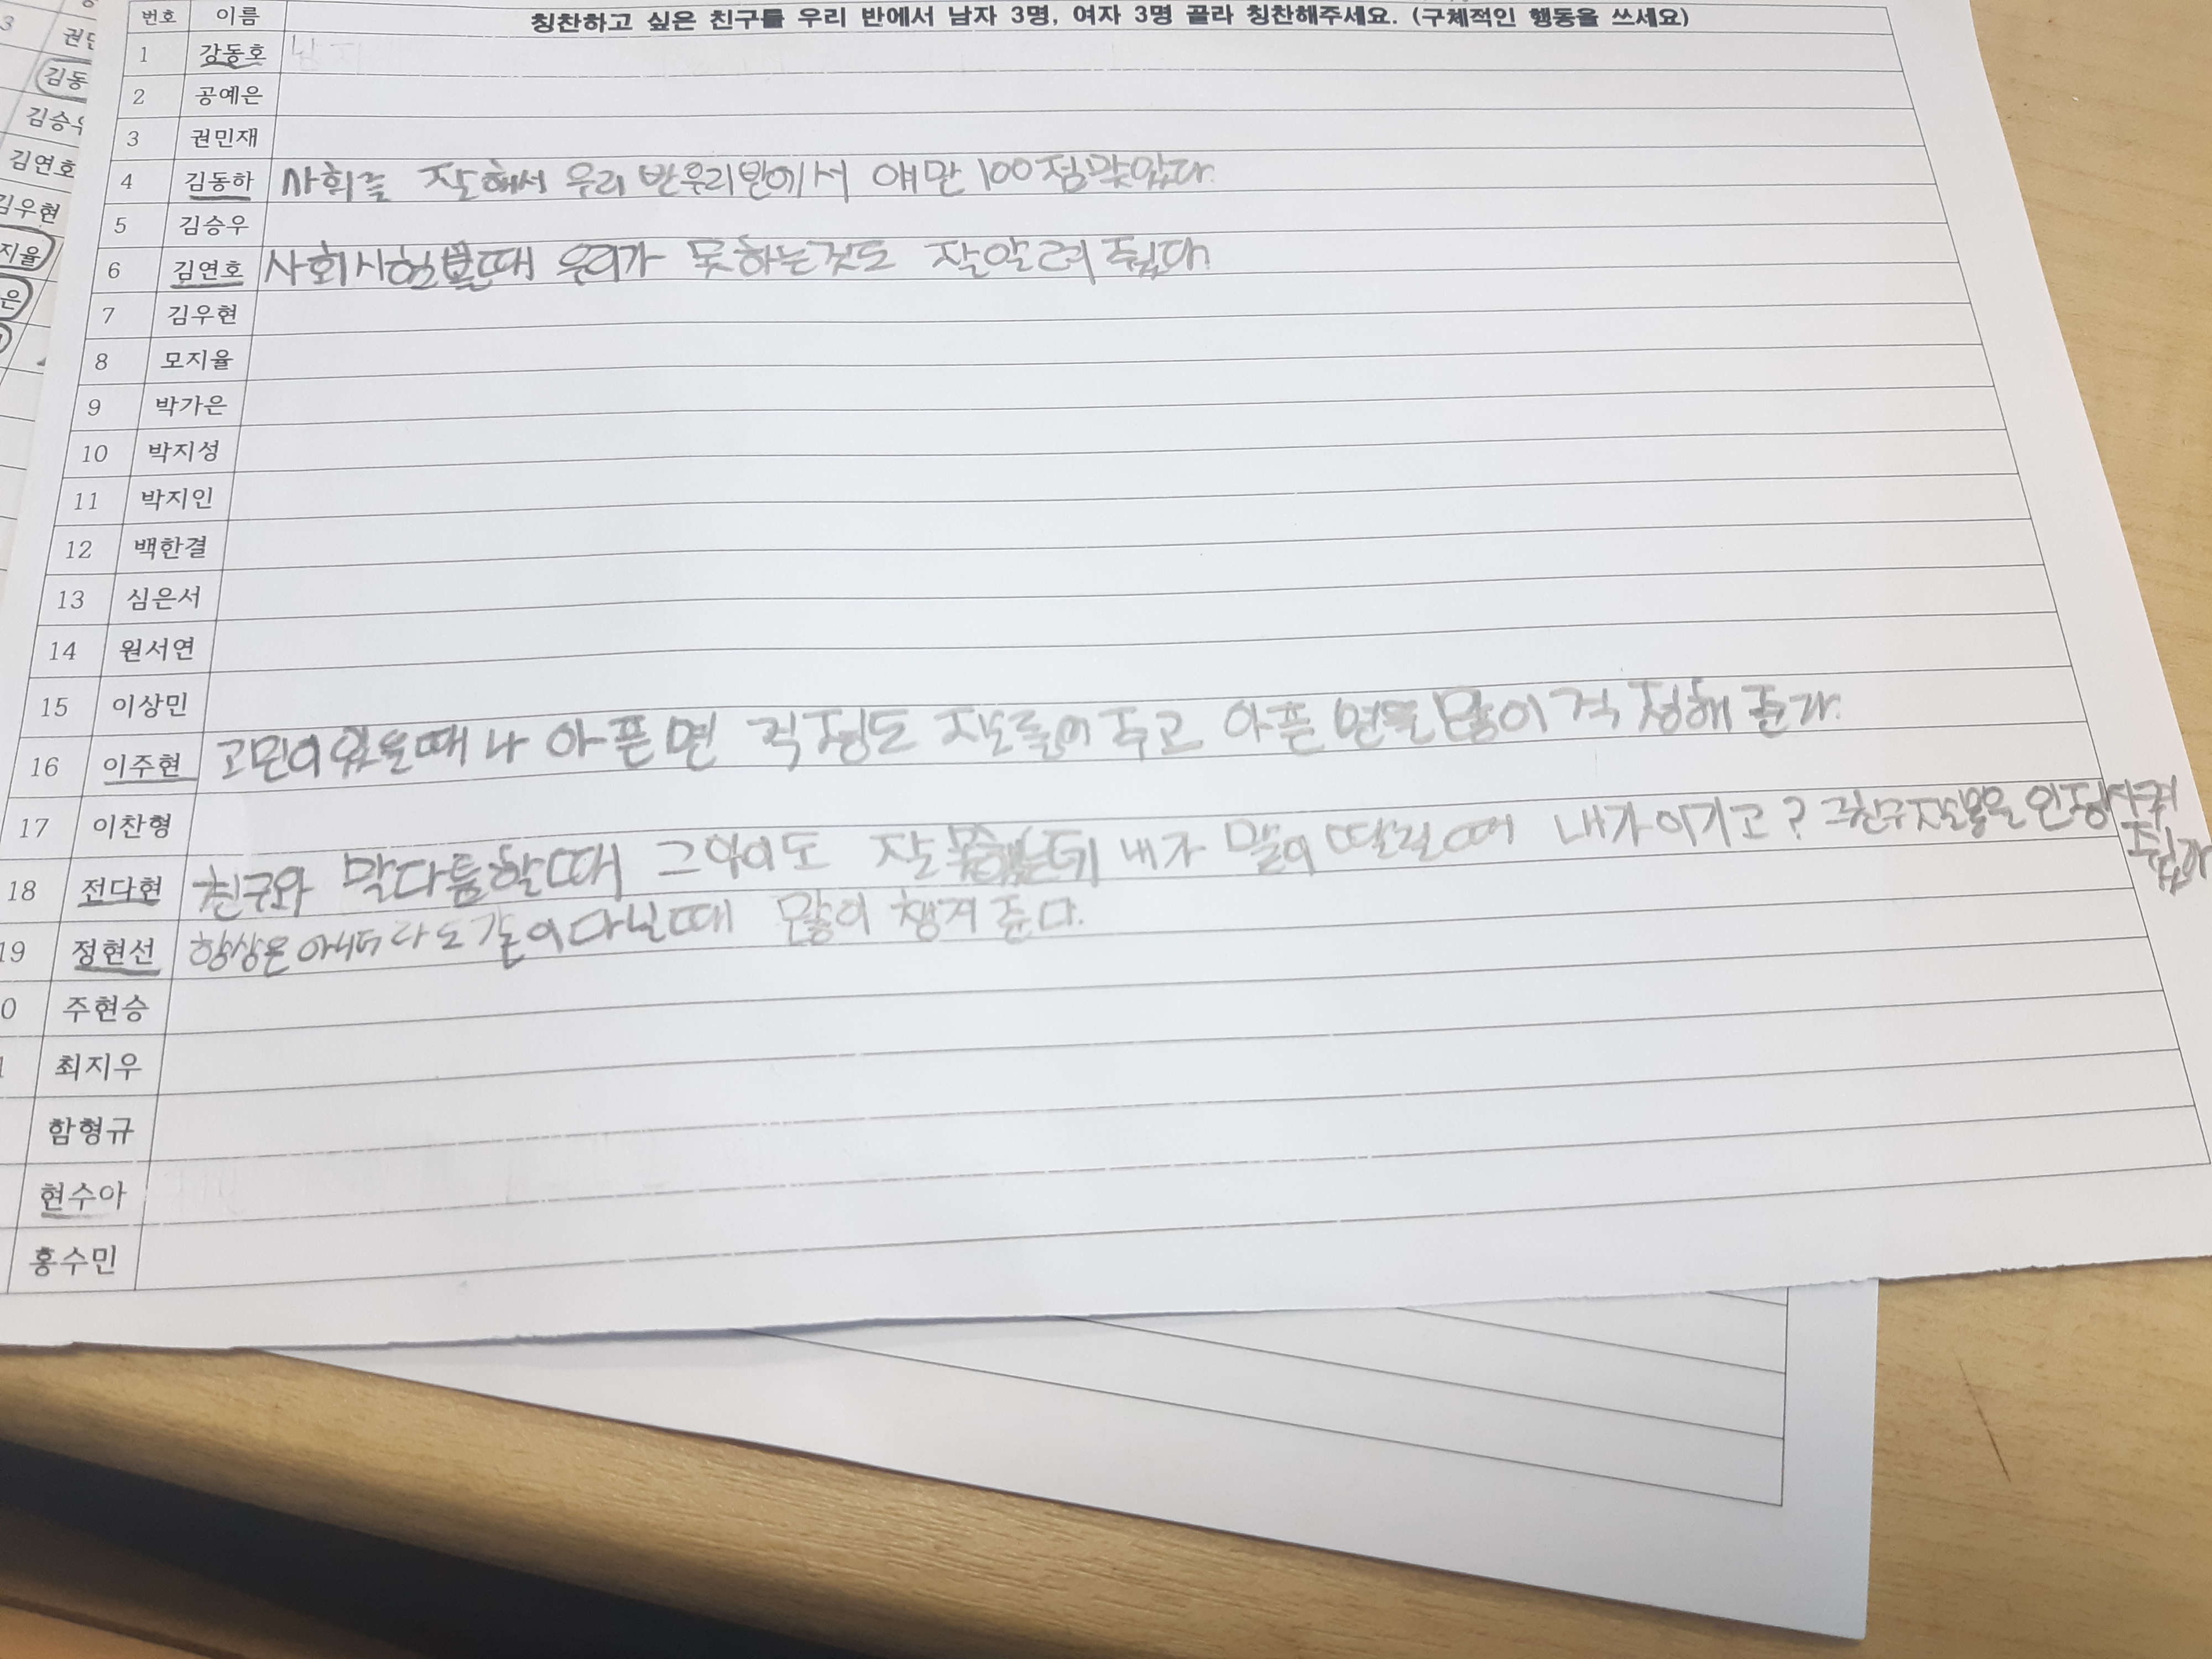 번호 이름 칭찬하고 싶은 친구를 우리 반에서 남자 3명, 여자 3명 골라 칭찬해주세요. (구체적인 행동을 쓰세요)
1 강동호
2 공예은
3 권민재
4 김동하 사회를 잘해서 우리 반우리반에서 얘만 100점맞았다.
5 김승우
6 김연호 사회시험볼때 우리가 못하는것도 잘알려 줬다
7 김우현
8 모지율
9 박가은
10 박지성
11 박지인
12 백한결
13 심은서
14 원서연
15 이상민
16 이주현 고민이있을때나 아픈면 걱정도 잘들어주고 아픈 면을많이걱정해준다.
17 이찬형
18 전다현 친구와 말다툼할때 그아이도 잘못했는데 내가 말이 딸릴때 내가이기고? 그친구잘못을 인정시켜
줬다
19 정현선 항상은아니더라도같이다닐때 많이 챙겨준다.
0 주현승
1 최지우
함형규
현수아
홍수민
3
김동
김승우
김연호
김우현
지율
은